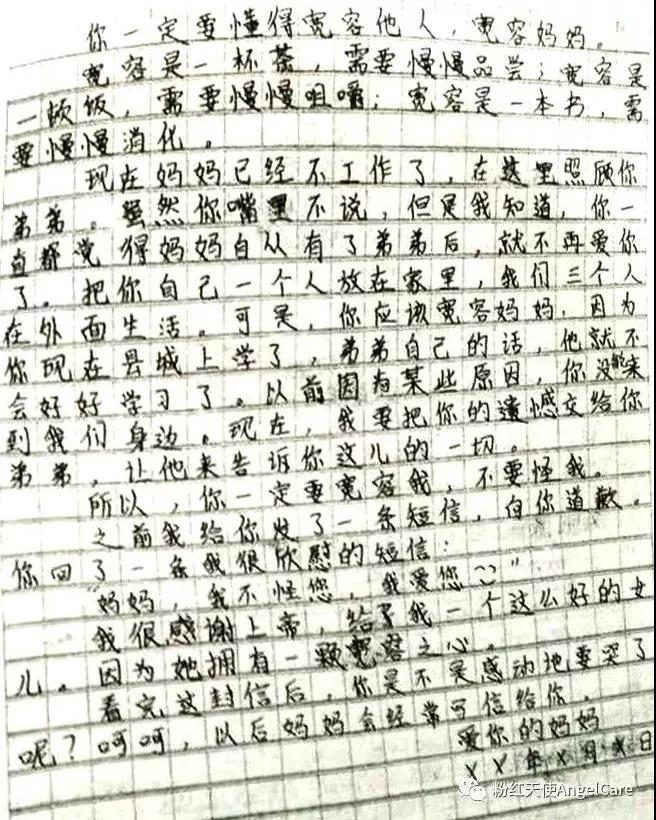 你一定要懂得宽容他人，宽容妈妈。
宽容是一杯茶，需要慢慢品尝；宽容是
一顿饭，需要慢慢咀嚼；宽容是一本书，需
要慢慢消化。
现在妈妈已经不工作了，在这里照顾你
弟弟。虽然你嘴里不说，但是我知道，你一
直都觉得妈妈自从有了弟弟后，就不再爱你
了。把你自己一个人放在家里，我们三个人
在外面生活。可是，你应该宽容妈妈，因为
你现在县城上学了，弟弟自己的话，他就不
会好好学习了。以前因为某些原因，你没能来
到我们身边。现在，我要把你的遗憾交给你
弟弟，让他来告诉你这儿的一切。
所以，你一定要宽容我，不要怪我。
之前我给你发了一条短信，向你道歉。
你回了一条我很欣慰的短信：
“妈妈，我不怪您，我爱您”
我很感谢上帝，给了我一个这么好的女
儿。因为她拥有一颗宽容之心。
看完这封信后，你是不是感动地要哭了
呢？呵呵，以后妈妈会经常写信给你。
爱你的妈妈
X X 年 X 月 X 日
粉红天使AngelCare